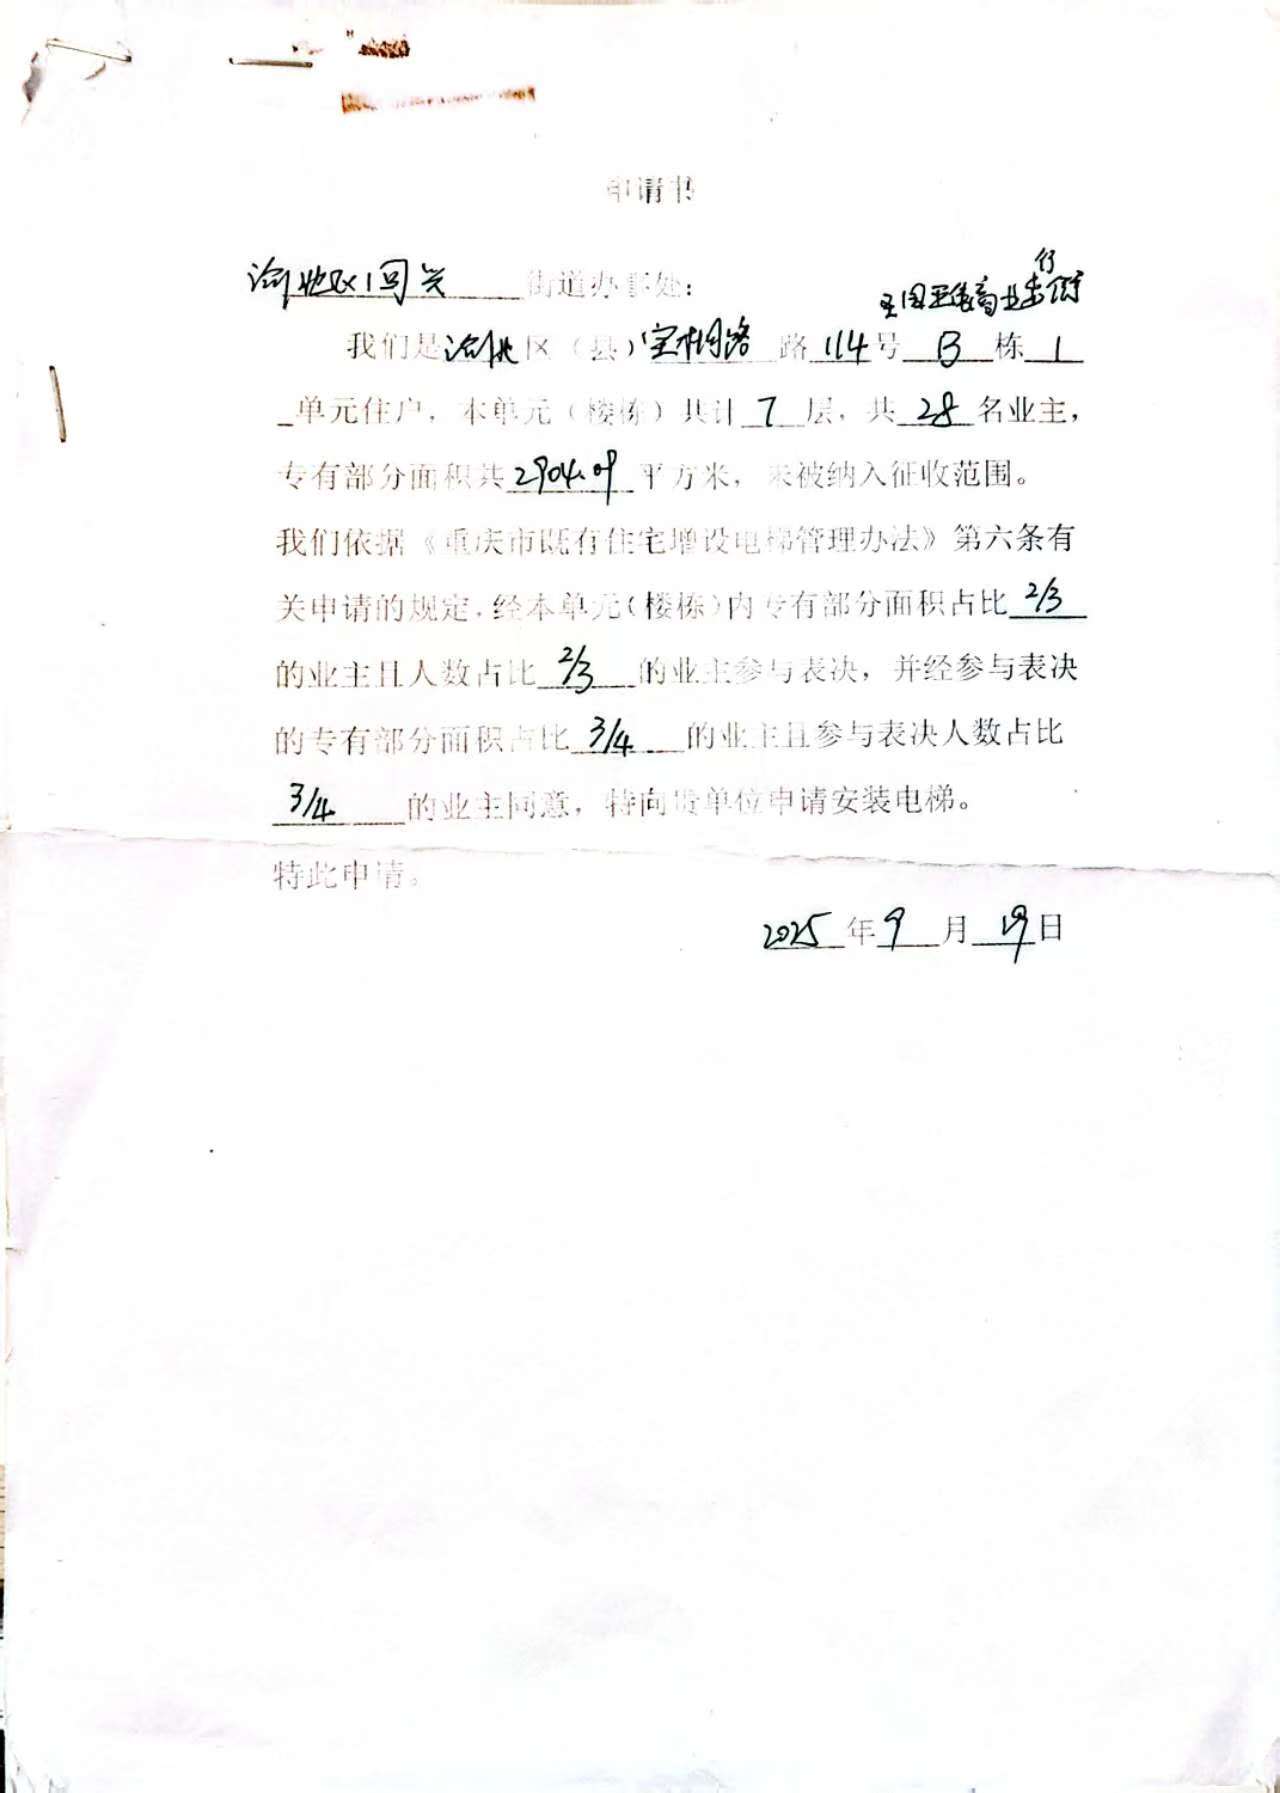 申请书
渝北区回兴 街道办事处：
商业步行街
我们是渝北区（县）宝桐路 路 114号 B 栋 1
单元住户，本单元（楼栋）共计 7 层，共 28 名业主，
专有部分面积共 2904.09 平方米，未被纳入征收范围。
我们依据《重庆市既有住宅增设电梯管理办法》第六条有
关申请的规定，经本单元（楼栋）内专有部分面积占比 2/3
的业主且人数占比 2/3 的业主参与表决，并经参与表决
的专有部分面积占比 3/4 的业主且参与表决人数占比
3/4 的业主同意，特向贵单位申请安装电梯。
特此申请。
2025 年 9 月 19 日